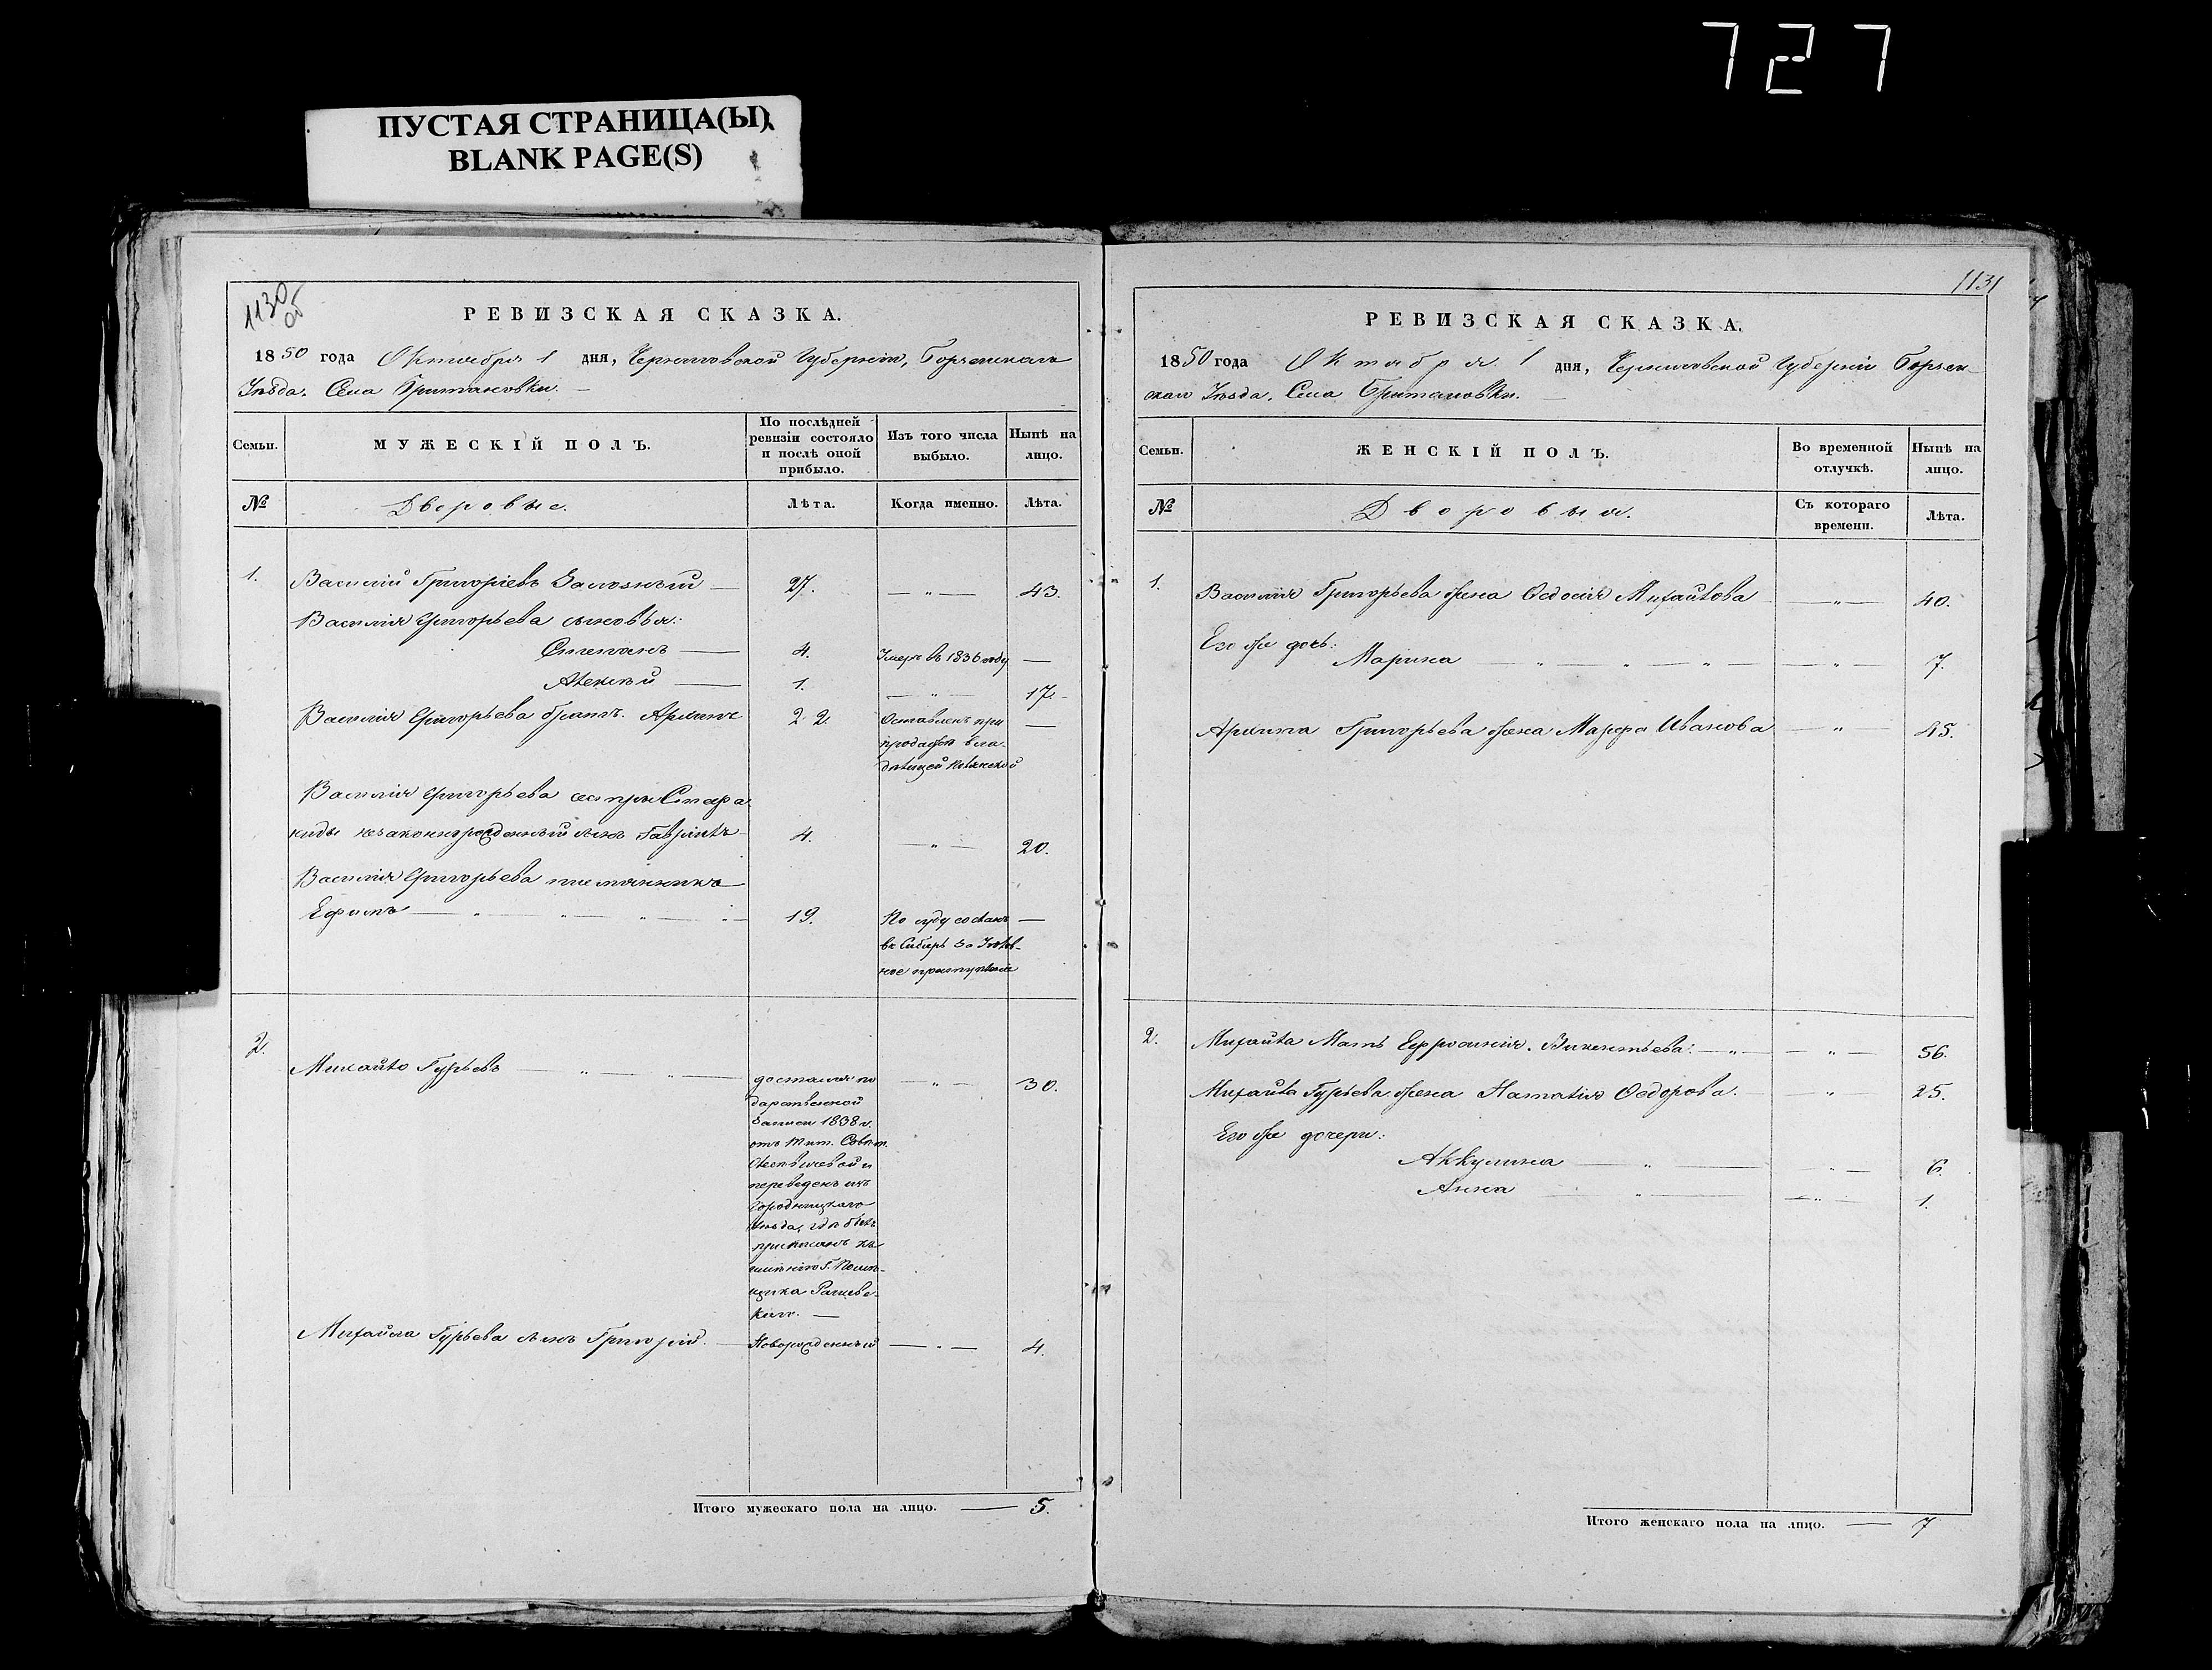 727
ПУСТАЯ СТРАНИЦА(Ы)
BLANK PAGE(S)
1130
об
РЕВИЗСКАЯ СКАЗКА.
1850 года Октября 1 дня, Черниговской Губерніи, Борзенскаго
Уѣзда, Села Британовки. —
Семьи.
МУЖЕСКІЙ ПОЛЪ.
По послѣдней
ревизіи состояло
и послѣ оной
прибыло.
Изъ того числа
выбыло.
Нынѣ на
лицо.
№
Дворовые.
Лѣта.
Когда именно.
Лѣта.
1. Василій Григоріевъ — 27. — " — 43.
Василія Григорьева сыновья:
Степанъ — 4. Умеръ въ 1836 году —
Алексѣй — 1. — " — 17 -
Василія Григорьева братъ 22 Оставленъ при —
продажѣ вла-
дѣлицей
Василія Григорьева сестры
незаконнорожденный сынъ Гаврилъ - 4. — " — 20.
Василія Григорьева племянникъ
Ефимъ — " — " — " — 19. По суду сосланъ —
въ Сибирь за
ное преступленіе
2. Михайло Гурьевъ — " — " — достался по — " — 30.
дарственной
записи 1838 г.
отъ Тит. Совѣт.
и
переведенъ изъ
Городницкаго
Уѣзда, гдѣ былъ
приписанъ къ
имѣнію Г. Помѣ-
щика Рашев-
каго. —
Михайла Гурьева сынъ Григорій. — Новорожденный — " — 4.
Итого мужескаго пола на лицо. — 5.
1131
РЕВИЗСКАЯ СКАЗКА.
1850 года Октября 1 дня, Черниговской Губерніи Борзен-
скаго Уѣзда, Села Британовки. —
Семьи.
ЖЕНСКІЙ ПОЛЪ.
Во временной
отлучкѣ.
Нынѣ на
лицо.
№
Дворовыя.
Съ котораго
времени.
Лѣта.
1. Василія Григорьева жена Ѳедосія Михайлова — " — 40.
Его же дочь:
Марина — " — " — " — — " — 7.
Григорьева жена Марфа Иванова — " — 45.
2. Михайла Мать Ефросинія Викентьева. — " — — " — 56.
Михайла Гурьева жена Наталія Ѳедорова. — — " — 25.
Его же дочери:
Аккулина — " — — " — 6.
Анна — " — — " — 1.
Итого женскаго пола на лицо. — 7